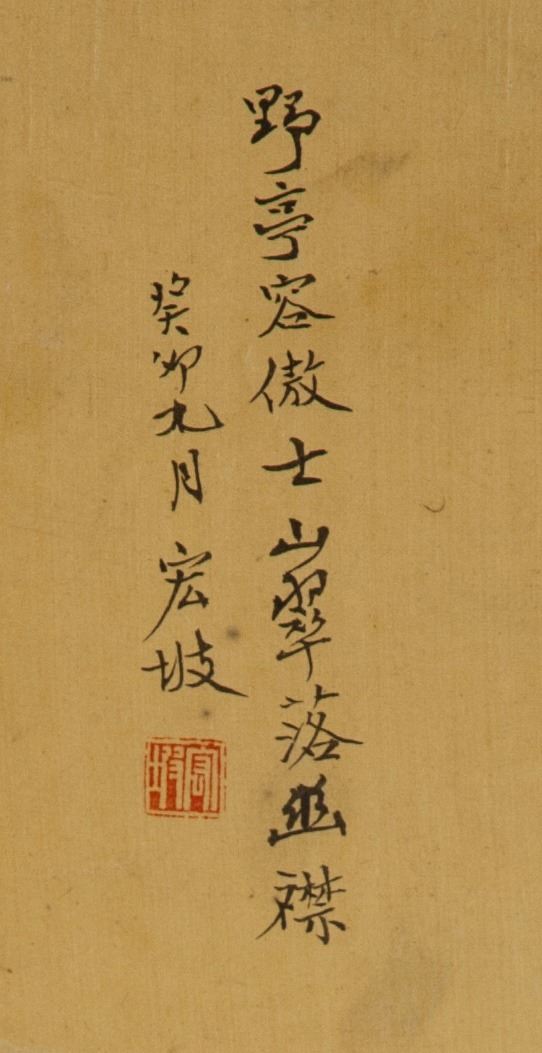 野亭容傲士山翠落幽襟
癸卯九月宏坡
宏坡